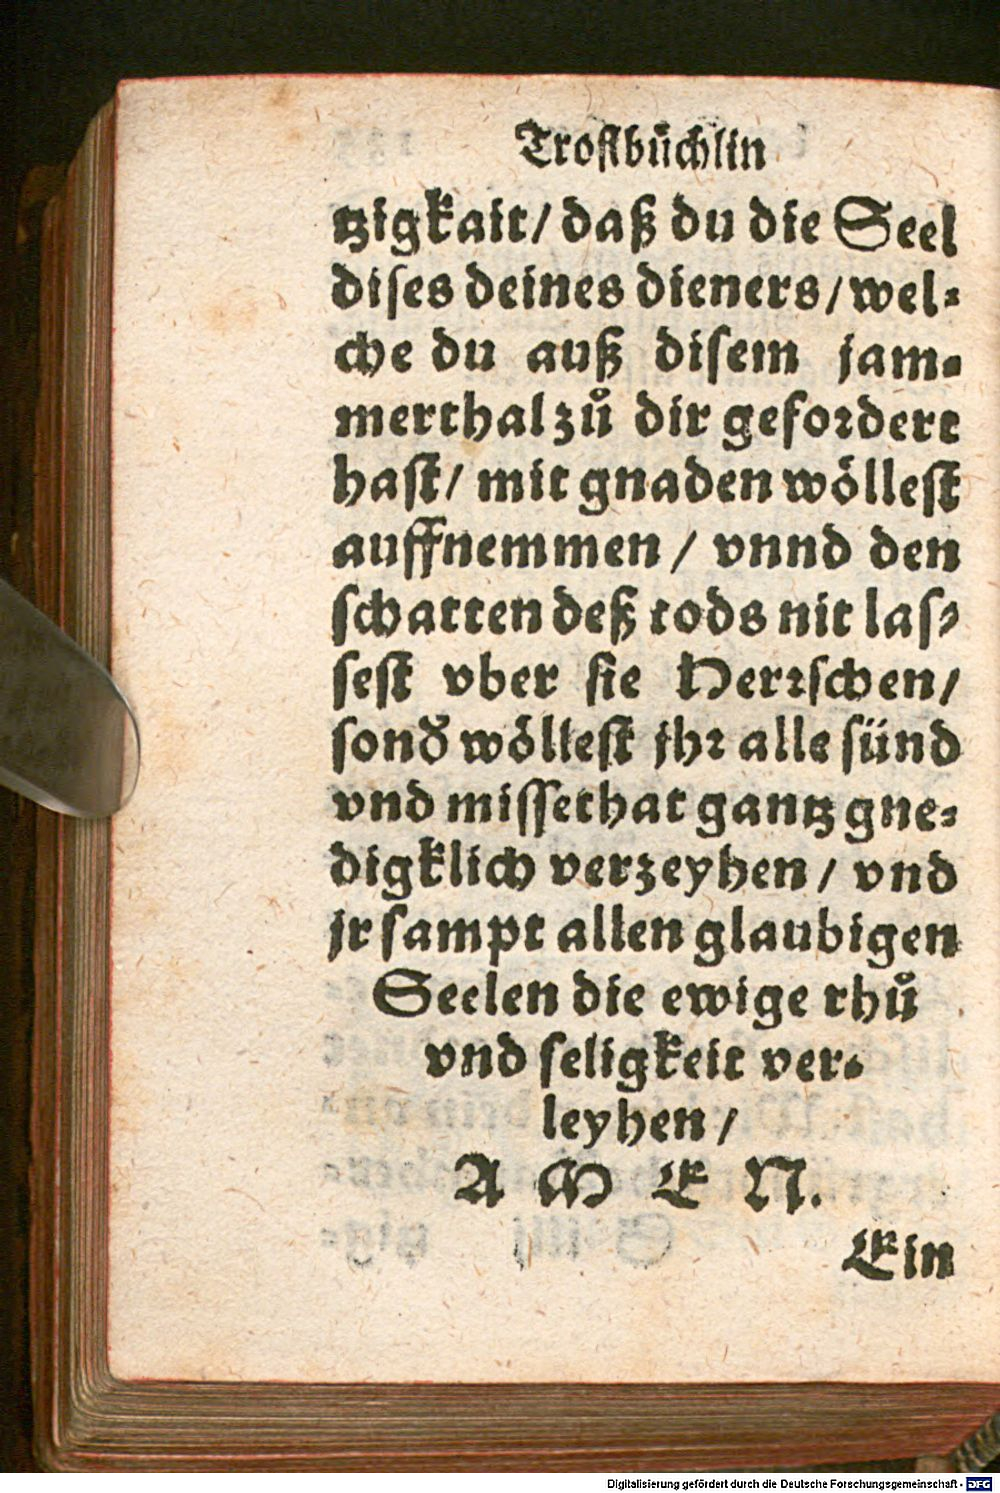 Troſtbuͤchlin
tzigkait/ daß du die Seel
diſes deines dieners/ wel⸗
che du auß diſem jam⸗
merthal zuͦ dir gefoꝛdert
haſt/ mit gnaden woͤlleſt
auffnemmen / vnnd den
ſchatten deß tods nit laſ⸗
ſeſt vber ſie Herꝛſchen/
ſonð woͤlleſt jhꝛ alle ſünd
vnd miſſethat gantz gne⸗
digklich verzeyhen / vnd
jr ſampt allen glaubigen
Seelen die ewige rhuͦ
vnd ſeligkeit ver⸗
leyhen /
A M E N.
Ein
Digitalisierung gefördert durch die Deutsche Forschungsgemeinschaft - DFG